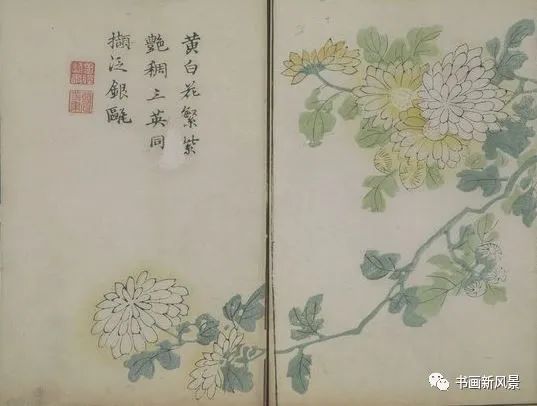 黄白花繁紫
艷稠三英同
擷泛銀甌
书画新风景